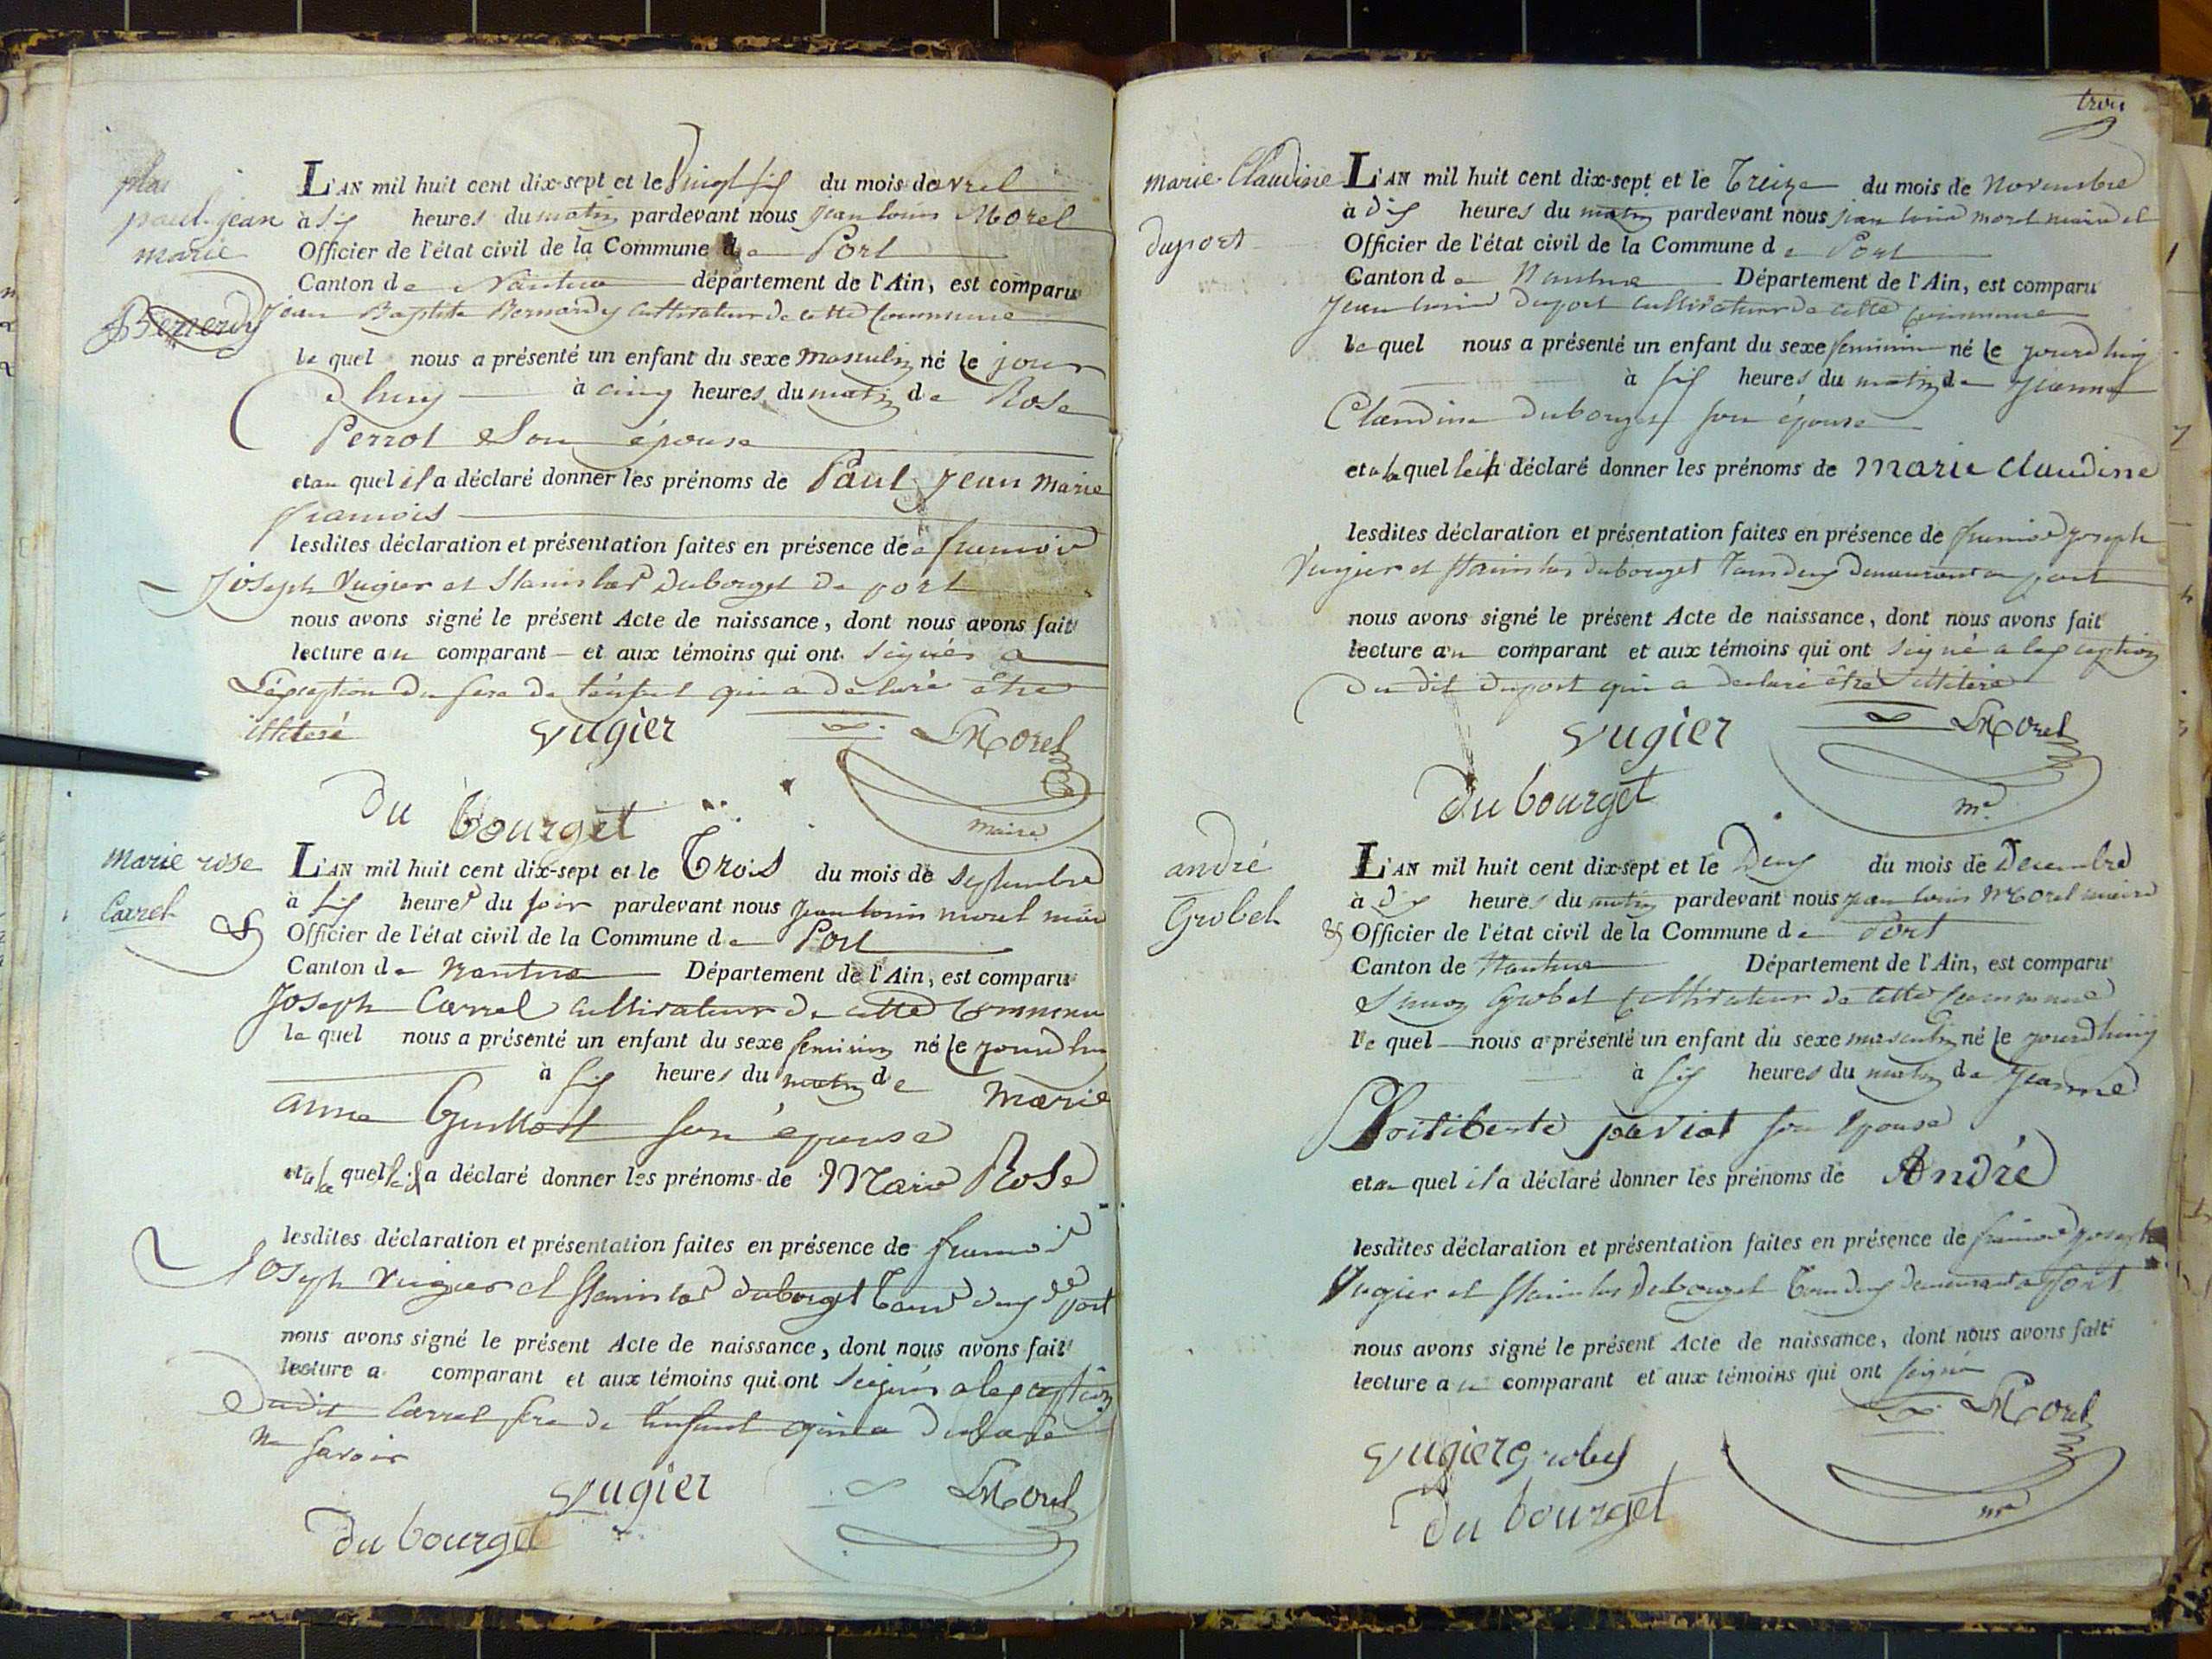 paul jean
marie
Bernerdy
L'AN mil huit cent dix-sept et le Vingt six du mois d'avrel
à six heures du matin pardevant nous jean louis Morel
Officier de l'état civil de la Commune de Port
Canton de Nantua département de l'Ain, est comparu
Jean Baptiste Bernardy Cultivateur de cette Commune
le quel nous a présenté un enfant du sexe masculin né le jour
d huy à cinq heures du matin de Rose
Perrot Son épouse
et au quel il a déclaré donner les prénoms de Paul Jean Marie
francois
lesdites déclaration et présentation faites en présence de francois
Joseph Vugier et Stanislas Dubourget De port
nous avons signé le présent Acte de naissance, dont nous avons fait
lecture au comparant et aux témoins qui ont signés a
L'éxception du pere de l'enfant qui a déclaré être
illiteré
vugier
LMorel
Maire
Du bourget
marie rose
Carrel
L'AN mil huit cent dix-sept et le Trois du mois de septembre
à six heures du soir pardevant nous Jean louis morel maire
Officier de l'état civil de la Commune de Port
Canton de Nantua Département de l'Ain, est comparu
Joseph Carrel Cultivateur de cette Commune
le quel nous a présenté un enfant du sexe feminin né le jourdhuy
à six heures du matin de Marie
anne son épouse
et a la quelle il a déclaré donner les prénoms de Marie Rose
lesdites déclaration et présentation faites en présence de francois
Joseph Vugier et Stanislas dubourget Tous deux de port
nous avons signé le présent Acte de naissance, dont nous avons fait
lecture a comparant et aux témoins qui ont signés a lexception
Dudit Carrel pere de l'enfant qui a declaré
ne savoir
vugier
LMorel
Du bourget
trois
marie Claudine
duport
L'AN mil huit cent dix-sept et le Treize du mois de Novembre
à dix heures du matin pardevant nous jean louis morel maire et
Officier de l'état civil de la Commune de Port
Canton de Nantua Département de l'Ain, est comparu
Jean louis duport cultivateur de cette commune
le quel nous a présenté un enfant du sexe feminin né le jourdhuy
à six heures du matin de jeanne
Claudine Dubourget son épouse
et a la quelle il a déclaré donner les prénoms de Marie Claudine
lesdites déclaration et présentation faites en présence de francois joseph
Vugier et Stanislas dubourget Tous deux demeurant a port
nous avons signé le présent Acte de naissance, dont nous avons fait
lecture au comparant et aux témoins qui ont signé a lexception
du dit duport qui a declaré être illiteré
vugier
LMorel
m.e
Du bourget
andré
Grobel
L'AN mil huit cent dix-sept et le Deux du mois de Decembre
à dix heures du matin pardevant nous jean louis Morel maire
Officier de l'état civil de la Commune de Port
Canton de Nantua Département de l'Ain, est comparu
Simon Grobel Cultivateur de cette Commune
le quel nous a présenté un enfant du sexe masculin né le jourdhuy
à six heures du matin de Jeanne
Philiberte paviot son épouse
et au quel il a déclaré donner les prénoms de André
lesdites déclaration et présentation faites en présence de francois joseph
Vugier et Stanislas Dubouget Tous deux demeurant a Port
nous avons signé le présent Acte de naissance, dont nous avons fait
lecture au comparant et aux témoins qui ont signé
LMorel
vugier grobel
me
Du bourget